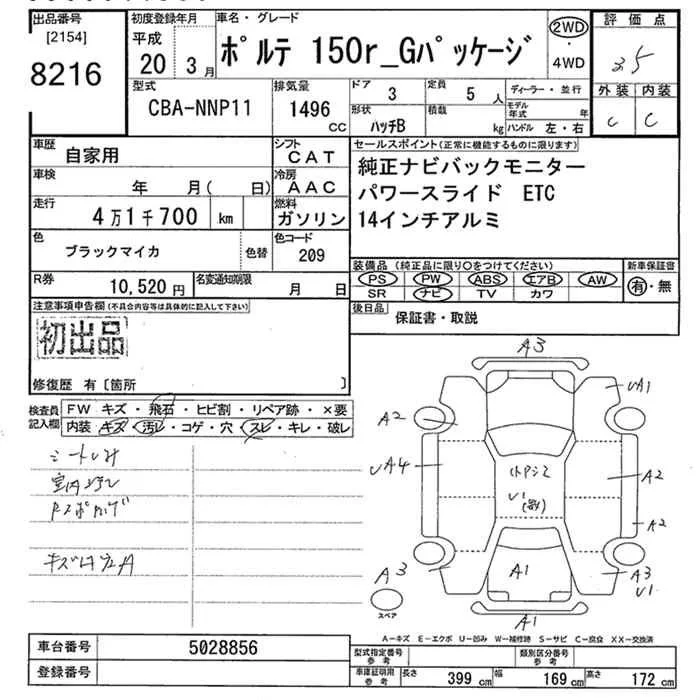 出品番号 [2154] 8216
初度登録年月 平成 20 3月
車名・グレード ポルテ 150r_Gパッケージ
2WD・4WD
評価点 35
外装 C 内装 C
型式 CBA-NNP11
排気量 1496 CC
ドア 3 定員 5 人
形状 ハッチB 積載 kg
ディーラー・並行
モデル年式 年
ハンドル 左・右
車歴 自家用
シフト CAT
車検 年 月( 日)
冷房 AAC
走行 4万1千700 km
燃料 ガソリン
色 ブラックマイカ 色替
色コード 209
R券 10,520円
名変通知期限 月 日
セールスポイント(正常に機能するものに限ります)
純正ナビバックモニター
パワースライド ETC
14インチアルミ
装備品 (純正品に限り○をつけてください)
PS PW ABS エアB AW
SR ナビ TV カワ
新車保証書
有・無
後日品 保証書・取説
注意事項申告欄(不具合内容等は具体的に記入して下さい)
初出品
修復歴 有〔箇所 〕
検査員記入欄
FW キズ・飛石・ヒビ割・リペア跡・×要
内装 キズ・汚レ・コゲ・穴・スレ・キレ・破レ
A3
UA1
A2
UA4
A2
U1
A2
A3
A1
A3
U1
スペア
A1
A-キズ E-エクボ U-凹み W-補修跡 S-サビ C-腐食 XX-交換済
車台番号 5028856
登録番号
型式指定番号 参考
類別区分番号 参考
車庫証明用 参考 長さ 399 cm 幅 169 cm 高さ 172 cm